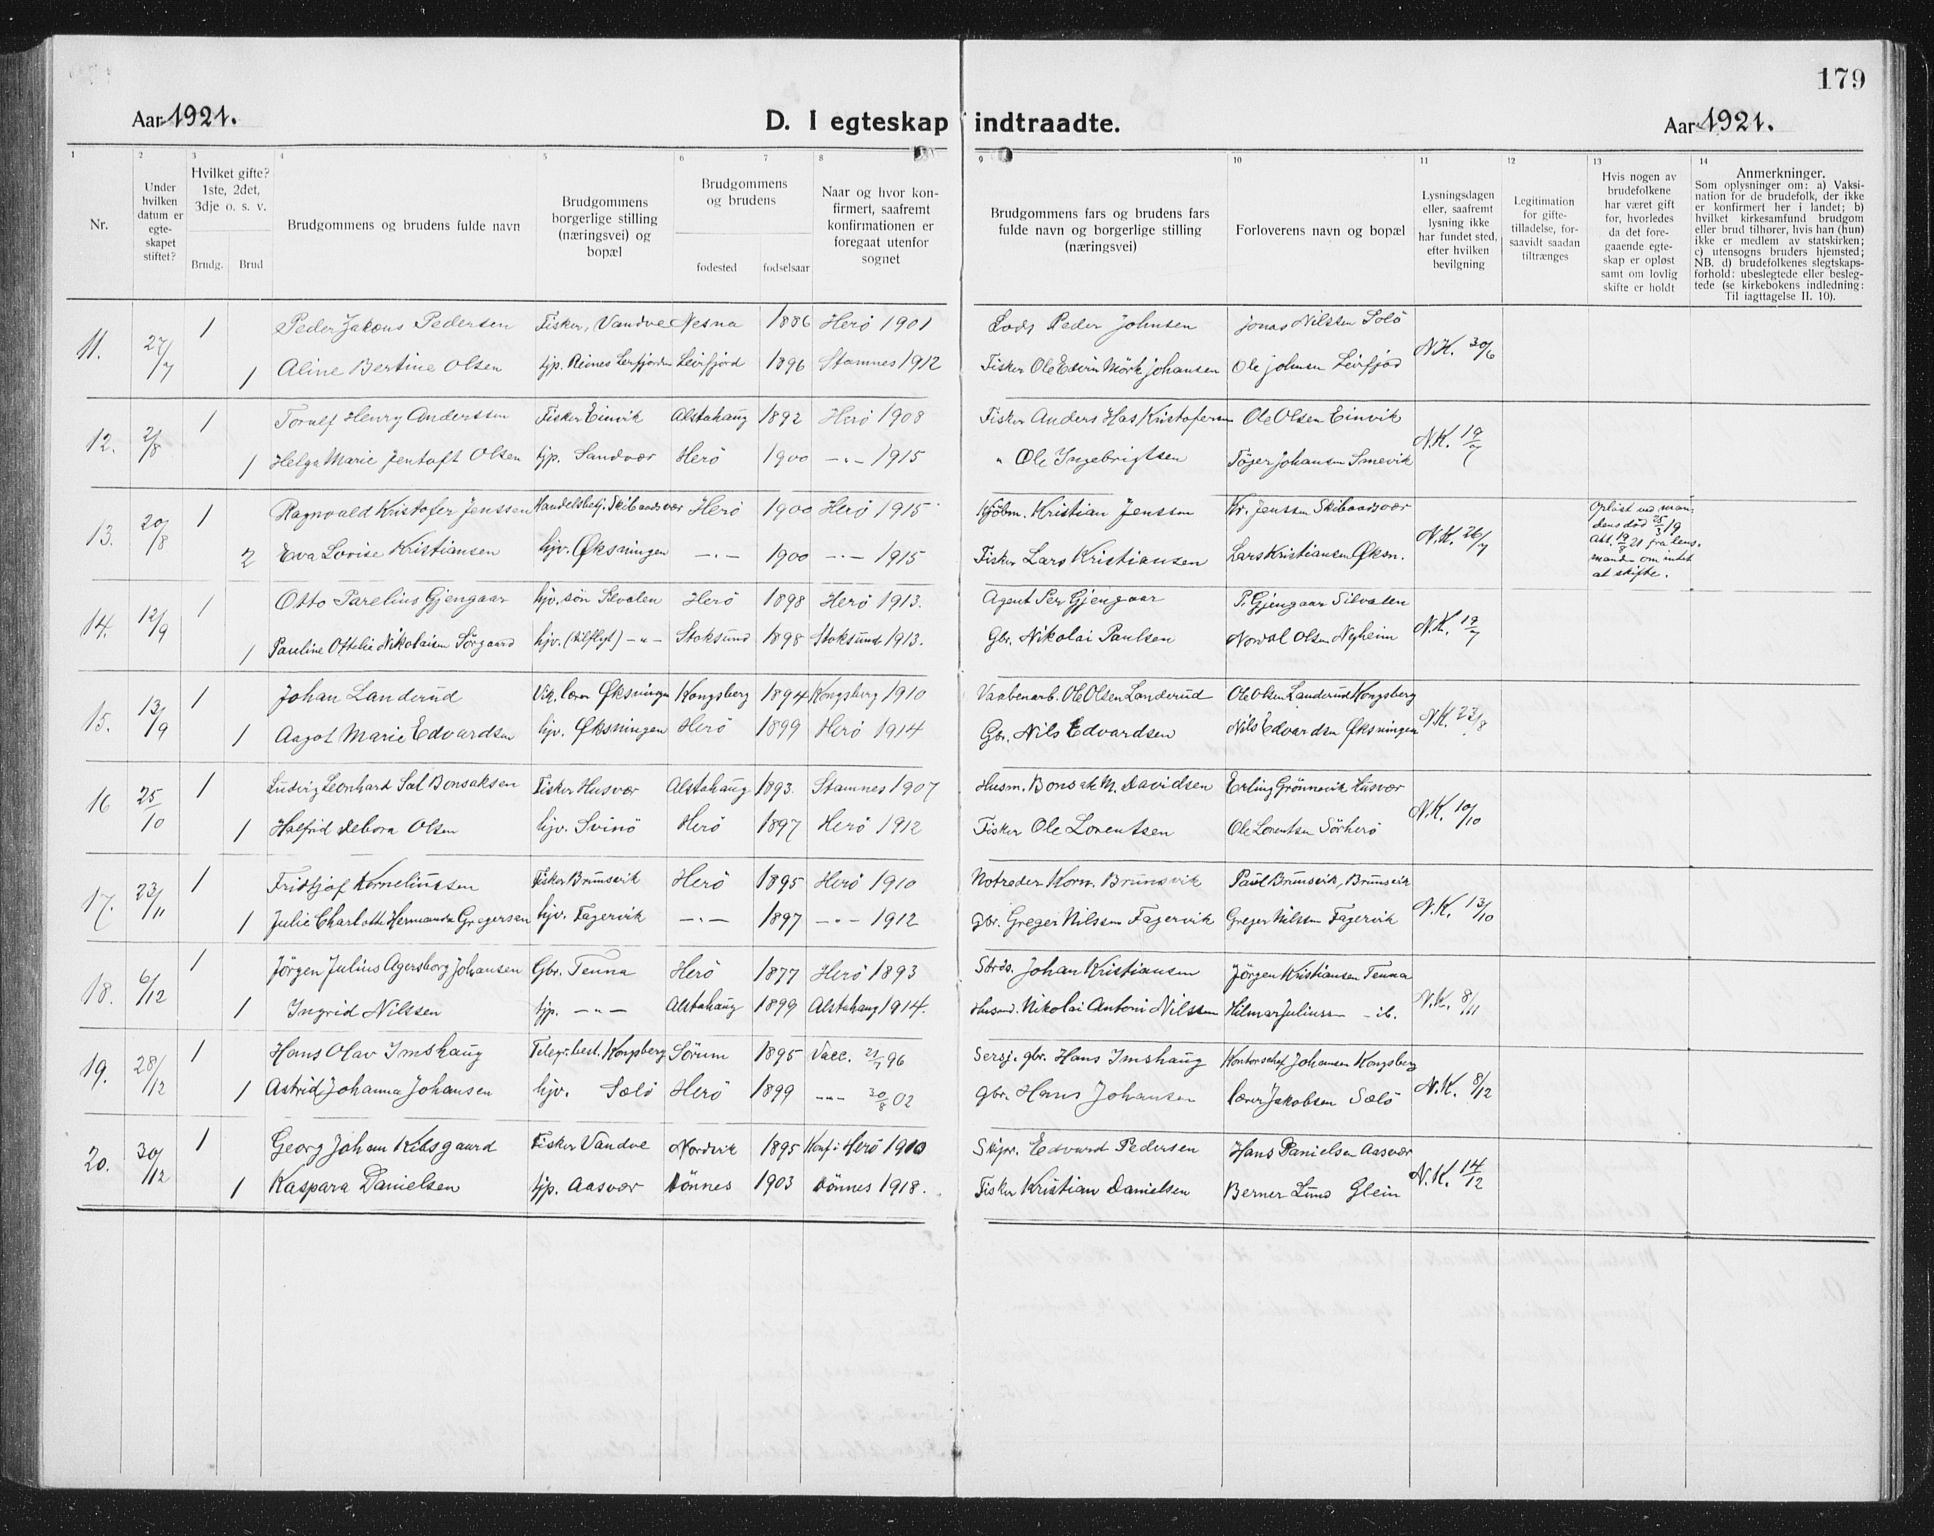 179
Aar 1921.
D. I egteskap indtraadte.
Aar 1921.
1 2 3 4 5 6 7 8 9 10 11 12 13 14
Nr.
Under hvilken datum er egte-skapet stiftet?
Hvilket gifte? 1ste, 2det, 3dje o. s. v.
Brudg. Brud
Brudgommens og brudens fulde navn
Brudgommens borgerlige stilling (næringsvei) og bopæl
Brudgommens og brudens
fødested fødselsaar
Naar og hvor kon-firmert, saafremt konfirmationen er foregaat utenfor sognet
Brudgommens fars og brudens fars fulde navn og borgerlige stilling (næringsvei)
Forloverens navn og bopæl
Lysningsdagen eller, saafremt lysning ikke har fundet sted, efter hvilken bevilgning
Legitimation for gifte-tilladelse, for-saavidt saadan tiltrænges
Hvis nogen av brudefolkene har været gift før, hvorledes da det fore-gaaende egte-skap er opløst samt om lovlig skifte er holdt
Anmerkninger.
Som oplysninger om: a) Vaksi-nation for de brudefolk, der ikke er konfirmert her i landet; b) hvilket kirkesamfund brudgom eller brud tilhører, hvis han (hun) ikke er medlem av statskirken; c) utensogns bruders hjemsted; NB. d) brudefolkenes slegtskaps-forhold: ubeslegtede eller besleg-tede (se kirkebokens indledning: Til iagttagelse II. 10).
11. 27/7 1 Peder Jakons Pedersen Fisker, Vandve Nesna 1886 Herö 1901 Lods Peder Johnsen Jonas Nilssen Solö N.K. 30/6
1 Aline Bertine Olsen tjp. Reines Leirfjorden Leirfjord 1896 Stamnes 1912 Fisker Ole Edvin Mörk Johansen Ole Johnsen Leirfjord
12. 2/8 1 Toralf Henry Anderssen Fisker Einvik Alstahaug 1892 Herö 1908 Fisker Anders Has Kristofersen Ole Olsen Einvik N.K. 19/7
1 Helga Marie Jentoft Olsen tjp. Sandvær Herö 1900 -"- 1915 " Ole Ingebrigtsen Töger Johansen Smevik
13. 20/8 1 Ragnvald Kristofer Jenssen Handelsbetj. Skibaadsvær Herö 1900 Herö 1915 Kjöbm. Kristian Jenssen Kr. Jenssen Skibaadsvær N.K. 26/7 Oplöst ved man-
2 Eva Lovise Kristiansen hjv. Øksningen -"- 1900 -"- 1915 Fisker Lars Kristiansen Lars Kristiansen Øksn.
dens död 25/3 19
Att. 19/8 21 fra lens-
mand om intet
at skifte.
14. 12/9 1 Otto Parelius Gjengaar hjv. sön Silvalen Herö 1898 Herö 1913. Agent Per Gjengaar P. Gjengaar Silvalen N.K. 19/7
1 Pauline Ottelie Nikolaisen Sörgaard hjv. (tilflyt) -"- Stoksund 1898 Stoksund 1913. Gbr. Nikolai Paulsen Norval Olsen Nyheim
15. 13/9 1 Johan Landerud Vik. lærer Øksningen Kongsberg 1894 Kongsberg 1910 Vaabenarb. Ole Olsen Landerud Ole Olsen Landerud Kongsberg N.K. 23/8
1 Aagot Marie Edvardsen hjv. Øksningen Herö 1899 Herö 1914 Gbr. Nils Edvardsen Nils Edvardsen Øksningen
16 25/10 1 Ludvig Leonhard Sal Bonsaksen Fisker Husvær Alstahaug 1893. Stamnes 1907 Husm. Bonsak M. Davidsen Erling Grönnevik Husvær N.K. 10/10
1 Halfrid Debora Olsen hjv. Svinö Herö 1897 Herö 1912 Fisker Ole Lorentsen Ole Lorentsen Sörherö
17. 23/11 1 Fridtjof Korneliussen Fisker Brunsvik Herö 1895 Herö 1910 Notreder Korn. Brunsvik Paul Brunsvik, Brunsvik N.K. 13/10
1 Julie Charlotte Hermanda Gregersen hjv. Fagervik -"- 1897 -"- 1912 gbr. Greger Nilssen Fagervik Greger Nilssen Fagervik
18. 6/12 1 Jörgen Julius Agersborg Johansen Gbr. Tenna Herö 1877 Herö 1893 Johan Kristiansen Jörgen Kristiansen Tenna N.K. 8/11
1 Ingrid Nilssen tjp. -"- Alstahaug 1899 Alstahaug 1914. Husmd. Nikolai Antoni Nilssen Hilmar Juliussen - ib.
19. 28/12 1 Hans Olav Imshaug Telegr. best. Kongsberg Sörum 1895 Vacc. 21/7 96 Sersj. gbr. Hans Imshaug Kontorchef Johansen Kongsberg N.K. 8/12
1 Astrid Johanna Johansen hjv. Sælö Herö 1899 -"- 30/8 02 gbr. Hans Johansen lærer Jakobsen Sælö
20. 30/12 1 Georg Johan Kilsgaard Fisker Vandve Nordvik 1895 Konf. i Herö 1910 Skipr. Edvard Pedersen Hans Danielsen Aasvær N.K. 14/12
1 Kaspara Danielsen tjp. Aasvær Dönnes 1903 Dönnes 1918. Fisker Kristian Danielsen Berner Lund Glein